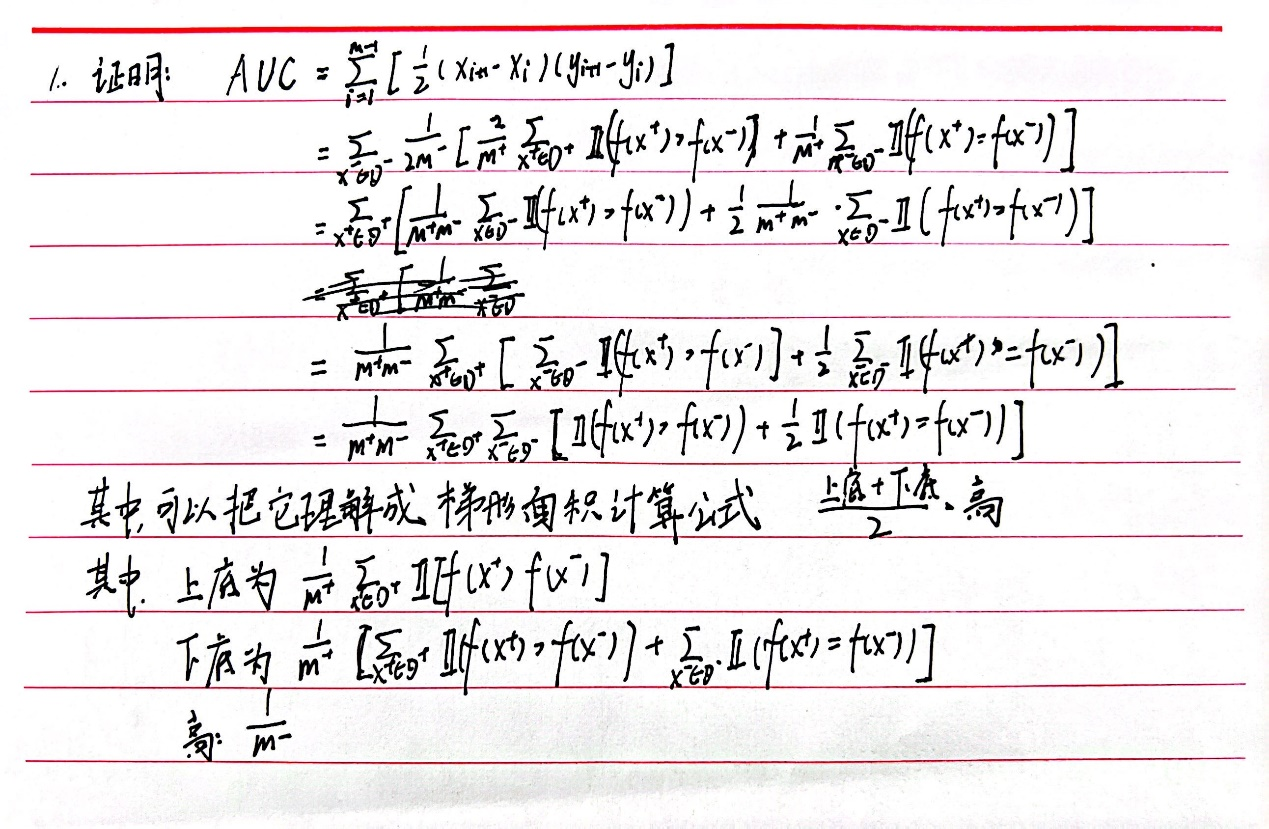 1. 证明: AUC = ∑_{i=1}^{m-1} [ 1/2 (x_{i+1} - x_i)(y_{i+1} - y_i) ]
= ∑_{x^-∈D^-} 1/(2m^-) [ 2/m^+ ∑_{x^+∈D^+} 𝕀(f(x^+) > f(x^-)) + 1/m^+ ∑_{x^-∈D^-} 𝕀(f(x^+) = f(x^-)) ]
= ∑_{x^+∈D^+} [ 1/(m^+m^-) ∑_{x∈D^-} 𝕀(f(x^+) > f(x^-)) + 1/2 1/(m^+m^-) · ∑_{x∈D^-} 𝕀(f(x^+) > f(x^-)) ]
= ∑_{x^+∈D^+} [ 1/(m^+m^-) ∑_{x^-∈D^-}
= 1/(m^+m^-) ∑_{x^+∈D^+} [ ∑_{x^-∈D^-} 𝕀(f(x^+) > f(x^-)] + 1/2 ∑_{x^-∈D^-} 𝕀(f(x^+) = f(x^-)) ]
= 1/(m^+m^-) ∑_{x^+∈D^+} ∑_{x^-∈D^-} [ 𝕀(f(x^+) > f(x^-)) + 1/2 𝕀(f(x^+) = f(x^-)) ]
其中,可以把它理解成 梯形面积计算公式 (上底+下底)/2 · 高
其中. 上底为 1/m^+ ∑_{x∈D^+} 𝕀[f(x^+) > f(x^-)]
下底为 1/m^+ [ ∑_{x^+∈D^+} 𝕀(f(x^+) > f(x^-)) + ∑_{x^-∈D^-} 𝕀(f(x^+) = f(x^-)) ]
高: 1/m^-